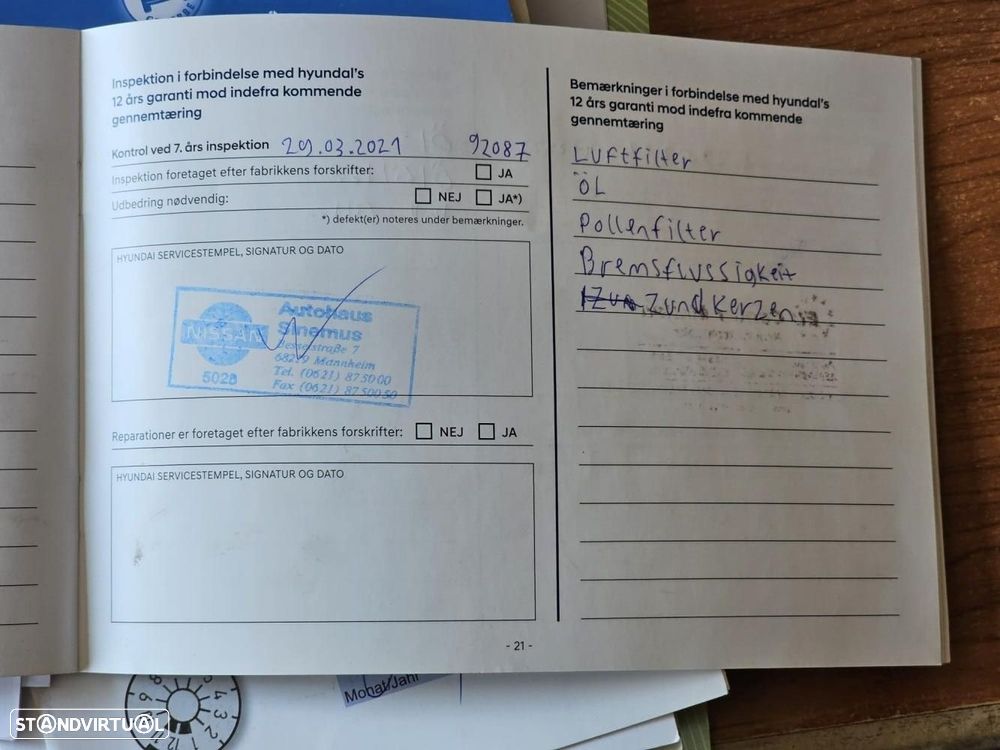 Inspektion i forbindelse med hyundai's
12 års garanti mod indefra kommende
gennemtæring
Kontrol ved 7. års inspektion 29.03.2021 92087
Inspektion foretaget efter fabrikkens forskrifter: JA
Udbedring nødvendig: NEJ JA*)
*) defekt(er) noteres under bemærkninger.
HYUNDAI SERVICESTEMPEL, SIGNATUR OG DATO
NISSAN
5028
Autohaus
Sinemus
68219 Mannheim
Tel. (0621) 875000
Fax (0621) 8750050
Reparationer er foretaget efter fabrikkens forskrifter: NEJ JA
HYUNDAI SERVICESTEMPEL, SIGNATUR OG DATO
- 21 -
Bemærkninger i forbindelse med hyundai's
12 års garanti mod indefra kommende
gennemtæring
Luftfilter
ÖL
Pollenfilter
Bremsflussigkeit
Zundkerzen
Monat/Jahr
STANDVIRTUAL